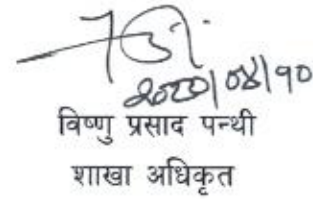 २०८०/०४/१०
विष्णु प्रसाद पन्थी
शाखा अधिकृत